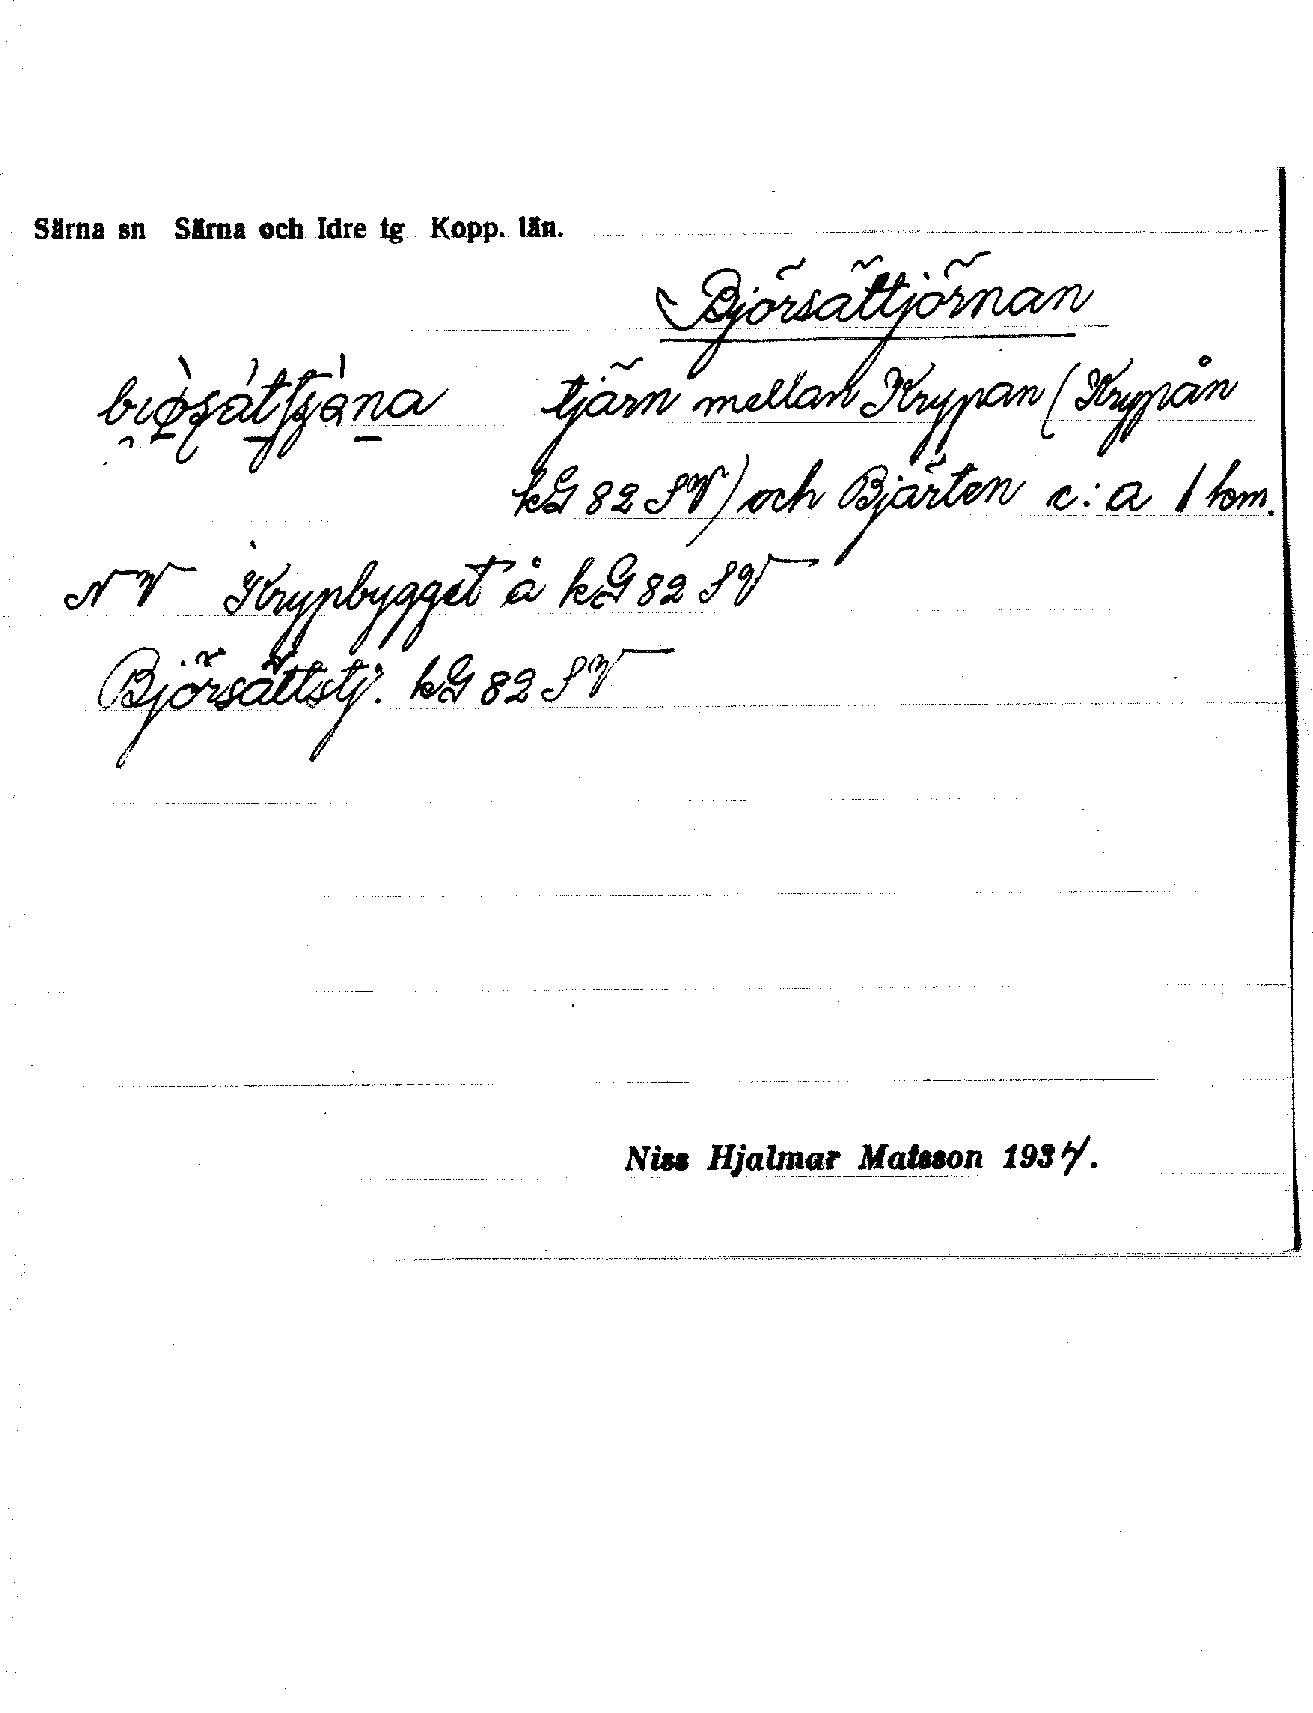 Särna sn Särna och Idre tg Kopp. län.
Björsättjörnan
tjärn mellan Krypan (Krypån
kG 82 SV) och Bjärten c:a 1 km.
NV Krypbygget å kG 82 SV
Björsättstj. kG 82 SV
Niss Hjalmar Matsson 1934.